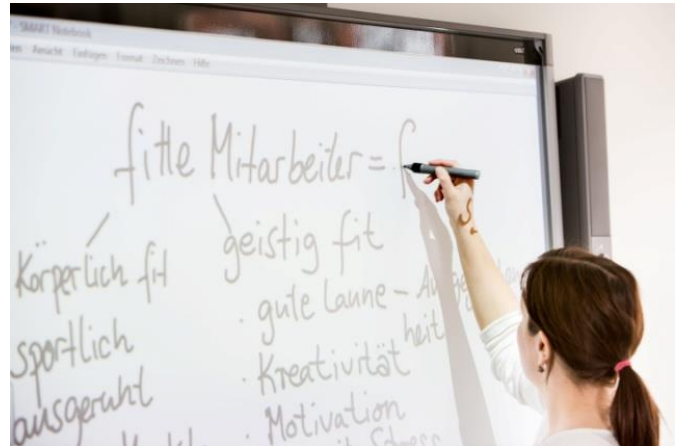 SMART Notebook
Ansicht Einfügen Format Zeichnen Hilfe
fitte Mitarbeiter = f
Körperlich fit
sportlich
ausgeruht
geistig fit
· gute Laune –
heit
· Kreativität
· Motivation
Stress